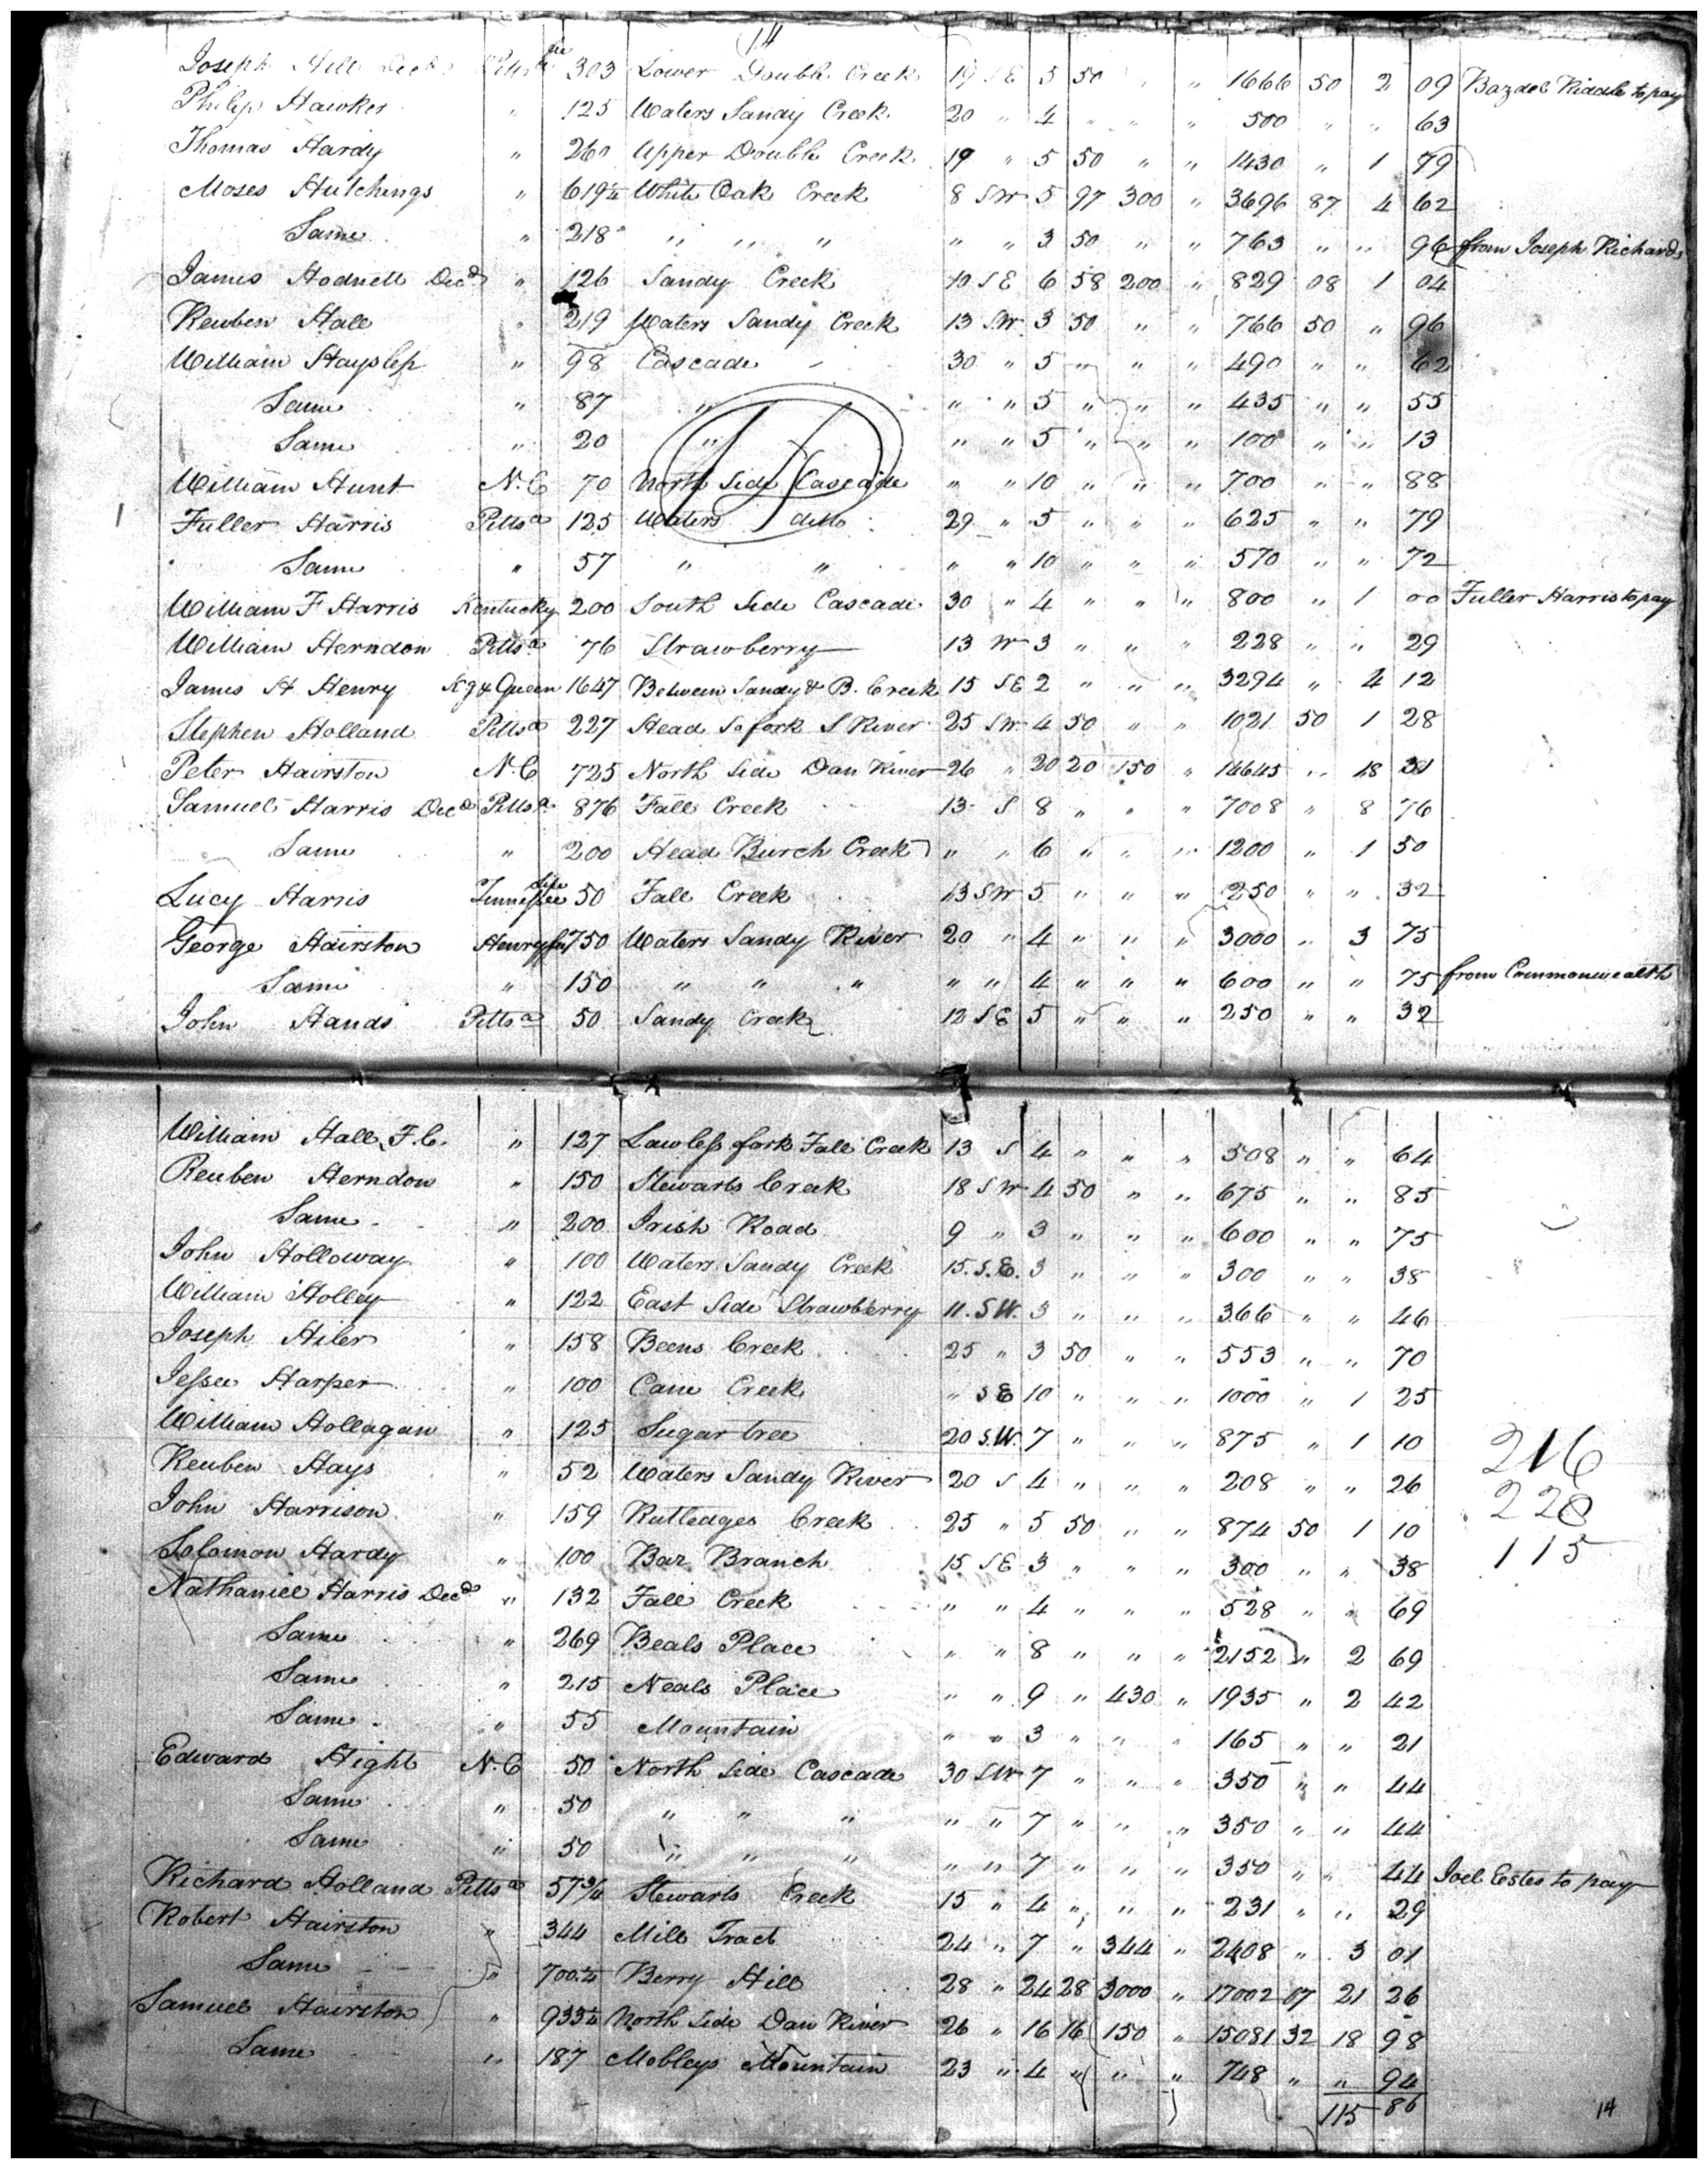 14
Joseph Hill Decd Pittsa 303 Lower Double Creek 19 S E 5 50 " " 1666 50 2 09 Bazdel Riddle to pay
Philip Hawker " 125 Waters Sandy Creek 20 " 4 " " " 500 " " 63
Thomas Hardy " 260 Upper Double Creek 19 " 5 50 " " 1430 " 1 79
Moses Hutchings " 619¼ White Oak Creek 8 S W 5 97 300 " 3696 87 4 62
Same " 218 " " " " " 3 50 " " 763 " " 96 from Joseph Richards
James Hodnett Decd " 126 Sandy Creek 19 S E 6 58 200 " 829 08 1 04
Reuben Hall " 219 Waters Sandy Creek 13 S.W. 3 50 " " 766 50 " 96
William Hayslip " 98 Cascade 30 " 5 " " " 490 " " 62
Same " 87 " " " 5 " " " 435 " " 55
Same " 20 " " " 5 " " " 100 " " 13
William Hunt N. C 70 North Side Cascade " " 10 " " " 700 " " 88
Fuller Harris Pittsa 125 Waters ditto 29 " 5 " " " 625 " " 79
Same " 57 " " " " 10 " " " 570 " " 72
William F Harris Kentucky 200 South Side Cascade 30 " 4 " " " 800 " 1 00 Fuller Harris to pay
William Herndon Pittsa 76 Strawberry 13 W 3 " " " 228 " " 29
James H Henry Kg & Queen 1647 Between Sandy & B. Creek 15 S E 2 " " " 3294 " 4 12
Stephen Holland Pittsa 227 Head So fork S River 25 S W 4 50 " " 1021 50 1 28
Peter Hairston N. C 725 North Side Dan River 26 " 20 20 150 " 14645 " 18 31
Samuel Harris Decd Pittsa 876 Fall Creek 13 S 8 " " " 7008 " 8 76
Same " 200 Head Burch Creek " " 6 " " " 1200 " 1 50
Lucy Harris Tennessee 50 Fall Creek 13 S W 5 " " " 250 " " 32
George Hairston Henry 750 Waters Sandy River 20 " 4 " " " 3000 " 3 75
Same " 150 " " " " " 4 " " " 600 " " 75 from Commonwealth
John Hands Pittsa 50 Sandy Creek 12 S E 5 " " " 250 " " 32
William Hall F. C. " 127 Lawless fork Fall Creek 13 S 4 " " " 508 " " 64
Reuben Herndon " 150 Stewarts Creek 18 S W 4 50 " " 675 " " 85
Same " 200 Irish Road 9 " 3 " " " 600 " " 75
John Holloway " 100 Waters Sandy Creek 15. S. E. 3 " " " 300 " " 38
William Holley " 122 East Side Strawberry 11. S. W. 3 " " " 366 " " 46
Joseph Hiler " 158 Beens Creek 25 " 3 50 " " 553 " " 70
Jessee Harper " 100 Cane Creek " S E 10 " " " 1000 " 1 25
William Hollagan " 125 Sugar tree 20 S. W. 7 " " " 875 " 1 10
216
Reuben Hays " 52 Waters Sandy River 20 S 4 " " " 208 " " 26
228
John Harrison " 159 Rutledges Creek 25 " 5 50 " " 874 50 1 10
115
Solomon Hardy " 100 Bar Branch 15 S E 3 " " " 300 " " 38
Nathaniel Harris Decd " 132 Fall Creek " " 4 " " " 528 " " 69
Same " 269 Beals Place " " 8 " " " 2152 " 2 69
Same " 215 Neals Place " " 9 " 430 " 1935 " 2 42
Same " 55 Mountain " " 3 " " " 165 " " 21
Edward Hight N. C 50 North Side Cascade 30 S W 7 " " " 350 " " 44
Same " 50 " " " " " 7 " " " 350 " " 44
Same " 50 " " " " " 7 " " " 350 " " 44 Joel Estes to pay
Richard Holland Pittsa 57¾ Stewarts Creek 15 " 4 " " " 231 " " 29
Robert Hairston " 344 Mill Tract 24 " 7 " 344 " 2408 " 3 01
Same " 700¼ Berry Hill 28 " 24 28 3000 " 17002 07 21 26
Samuel Hairston " 933¼ North Side Dan River 26 " 16 16 150 " 15081 32 18 98
Same " 187 Mobleys Mountain 23 " 4 " " " 748 " " 94
115 86
14